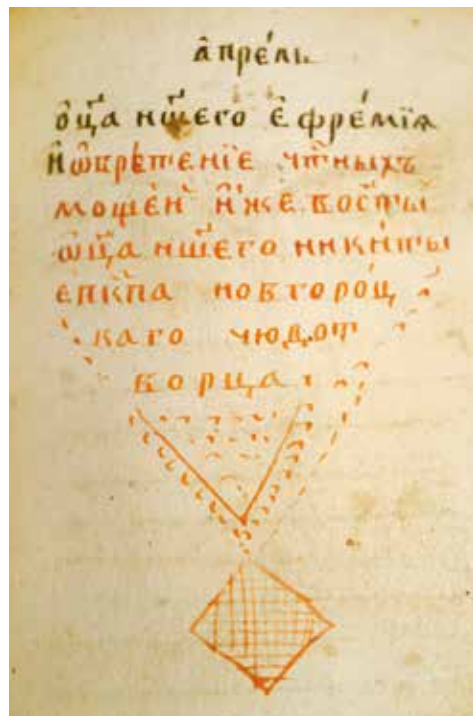 а҆прє́ль
ѻ҆ц҃а нш҃єго є҆фрє́мїѧ
и҆ ѡ҆брѣтенїе чтⷭ҇ныхъ
моще́й и҆́же во ст҃ы
ѡ҆ц҃а нш҃его ники́ты
єпкⷭ҇па новгоро́ц
каго чюдот
ворца